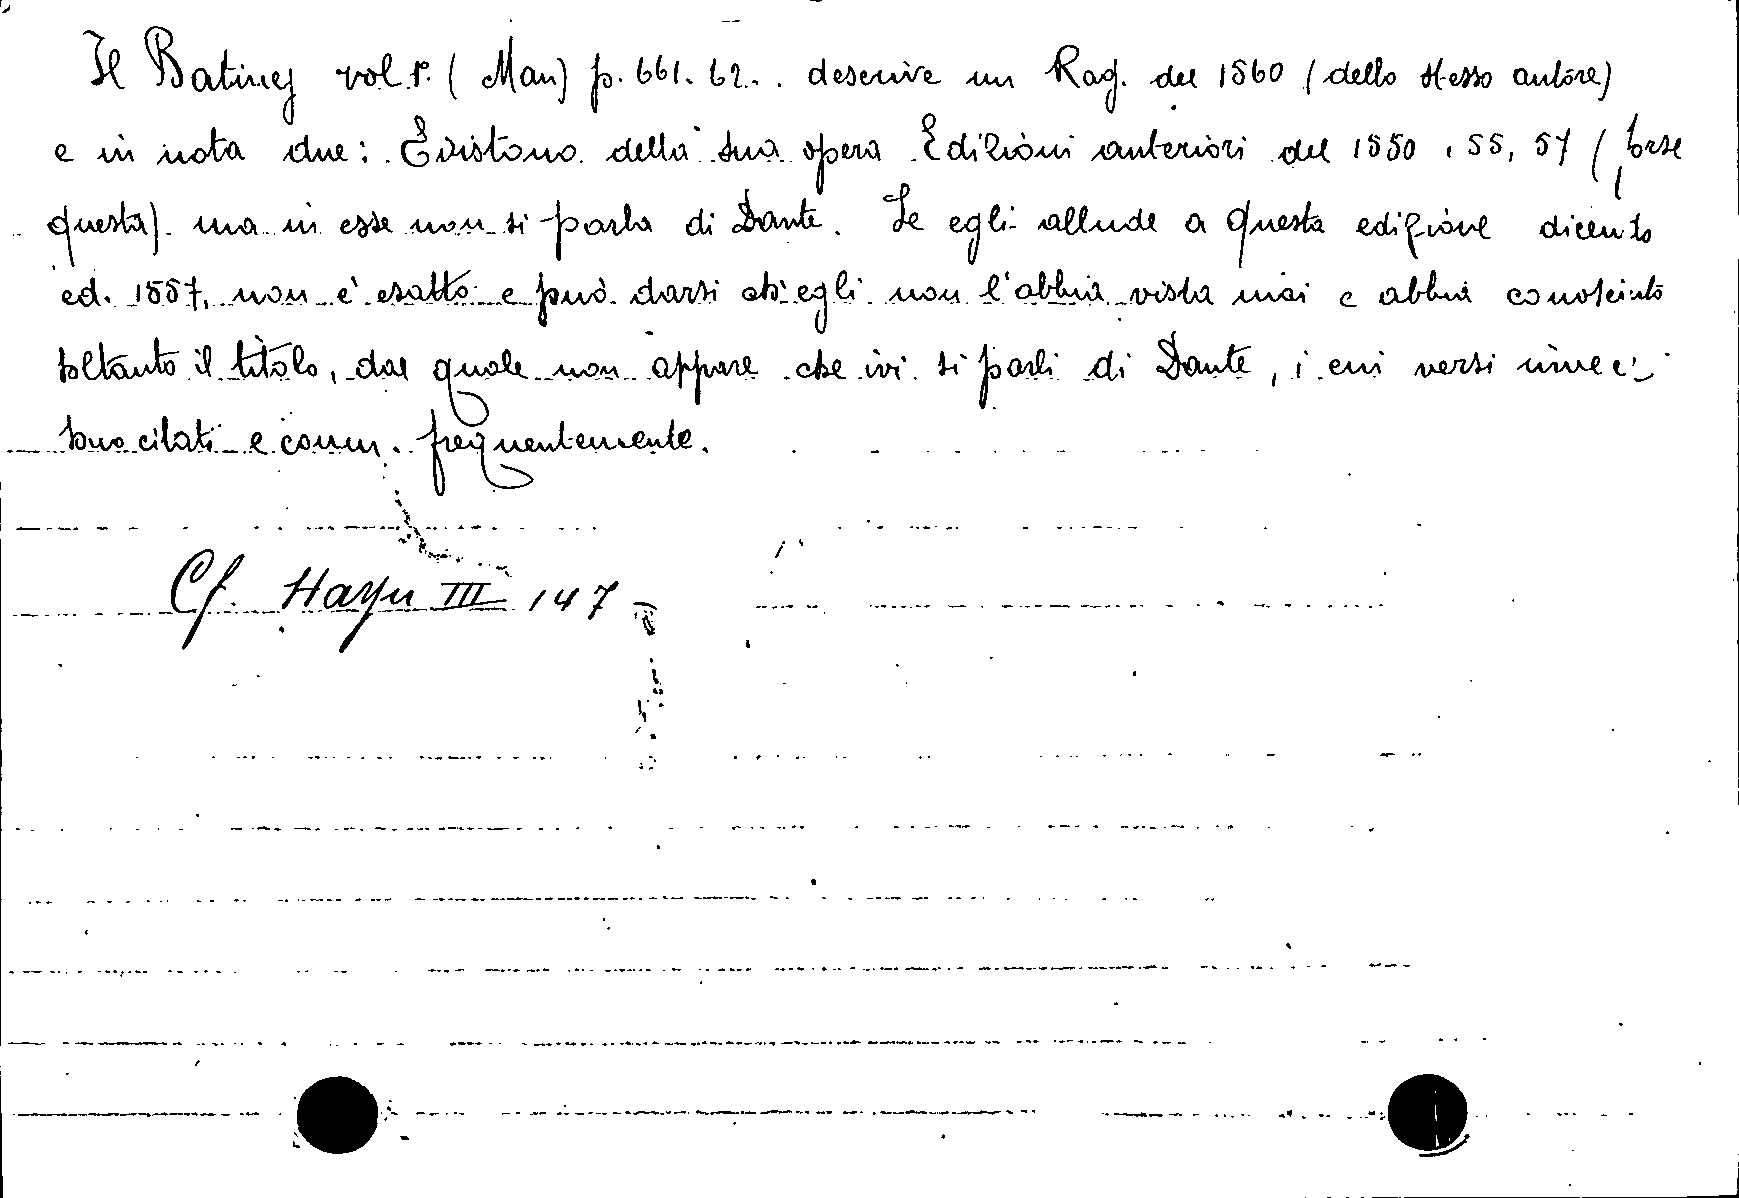 Il Batines vol 1º. (Man) p. 661. 62.. descrive un Rag. del 1560 (dello stesso autore)
e in nota due: Esistono della sua opera Edizioni anteriori del 1550, 55, 57 (forse
questa) ma in esse non si parla di Dante. Se egli allude a questa edizione dicento
ed. 1557, non è esatto e può darsi ch'egli non l'abbia vista mai e abbia conosciuto
soltanto il titolo, dal quale non appare che ivi si parli di Dante, i cui versi invece
sono citati e comm. frequentemente.
Cf. Haym III 147